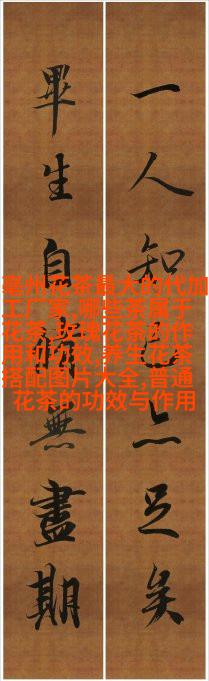 一人知己亦足矣
畢生自無盡期
亳州花茶最大的代加
工厂家,哪些茶属于
花茶,玫瑰花茶的作
用和功效,养生花茶
搭配图片大全,普通
花茶的功效与作用